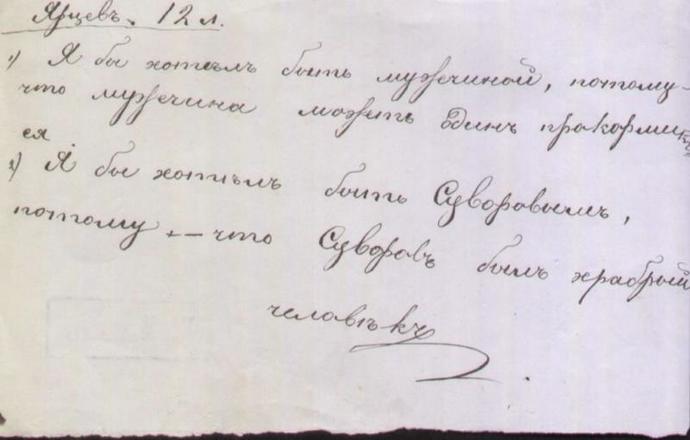 Ярцевъ. 12 л.
1) Я бы хотѣлъ быть мужчиной, потому-
что мужчина можетъ одинъ прокормить
ся.
2) Я бы хотѣлъ быть Суворовымъ,
потому - что Суворовъ былъ храбрый
человѣкъ